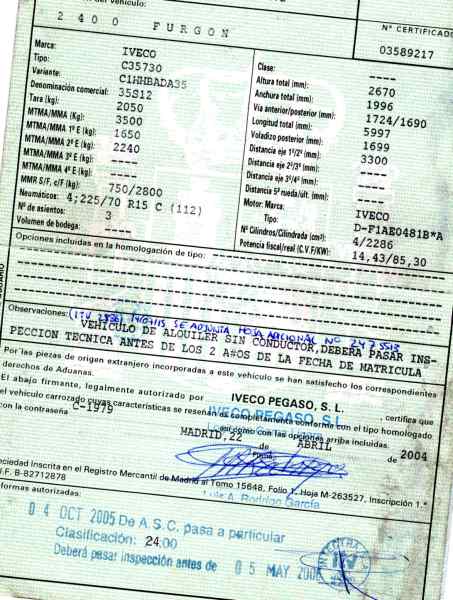 del vehículo:
2400 FURGON
Nº CERTIFICADO
03589217
Marca: IVECO
Tipo: C35730
Variante: C1HHBADA35
Denominación comercial: 35S12
Tara (kg): 2050
MTMA/MMA (Kg): 3500
MTMA/MMA 1º E (kg): 1650
MTMA/MMA 2º E (kg): 2240
MTMA/MMA 3º E (kg): ----
MTMA/MMA 4º E (kg): ----
MMR S/F, c/F (kg): 750/2800
Neumáticos: 4;225/70 R15 C (112)
Nº de asientos: 3
Volumen de bodega: ----
Clase: ----
Altura total (mm): 2670
Anchura total (mm): 1996
Vía anterior/posterior (mm): 1724/1690
Longitud total (mm): 5997
Voladizo posterior (mm): 1699
Distancia eje 1º/2º (mm): 3300
Distancia eje 2º/3º (mm): ----
Distancia eje 3º/4º (mm): ----
Distancia 5ª rueda/últ. (mm): ----
Motor: Marca: IVECO
Tipo: D-F1AE0481B*A
Nº Cilindros/Cilindrada (cm³): 4/2286
Potencia fiscal/real (C.V.F/KW): 14,43/85,30
Opciones incluidas en la homologación de tipo:
Observaciones: (ITV 2836) 14/07/15 SE ADJUNTA HOJA ADICIONAL Nº 2475513
VEHICULO DE ALQUILER SIN CONDUCTOR, DEBERA PASAR INS-
PECCION TECNICA ANTES DE LOS 2 A#OS DE LA FECHA DE MATRICULA
Por las piezas de origen extranjero incorporadas a este vehículo se han satisfecho los correspondientes
derechos de Aduanas.
El abajo firmante, legalmente autorizado por IVECO PEGASO, S. L. , certifica que
el vehículo carrozado cuyas características se reseñan es completamente conforme con el tipo homologado
IVECO PEGASO, S. L.
con la contraseña C-1979 así como con las opciones arriba incluidas.
MADRID, 22 de ABRIL de 2004
Firma:
Sociedad Inscrita en el Registro Mercantil de Madrid al Tomo 15648, Folio 1, Hoja M-263527, Inscripción 1ª
I.F. B-82712878
Luis A. Rodrigo García
Reformas autorizadas:
04 OCT 2005 De A.S.C. pasa a particular
Clasificación: 24;00
Deberá pasar inspección antes de 05 MAY 2006
ITV